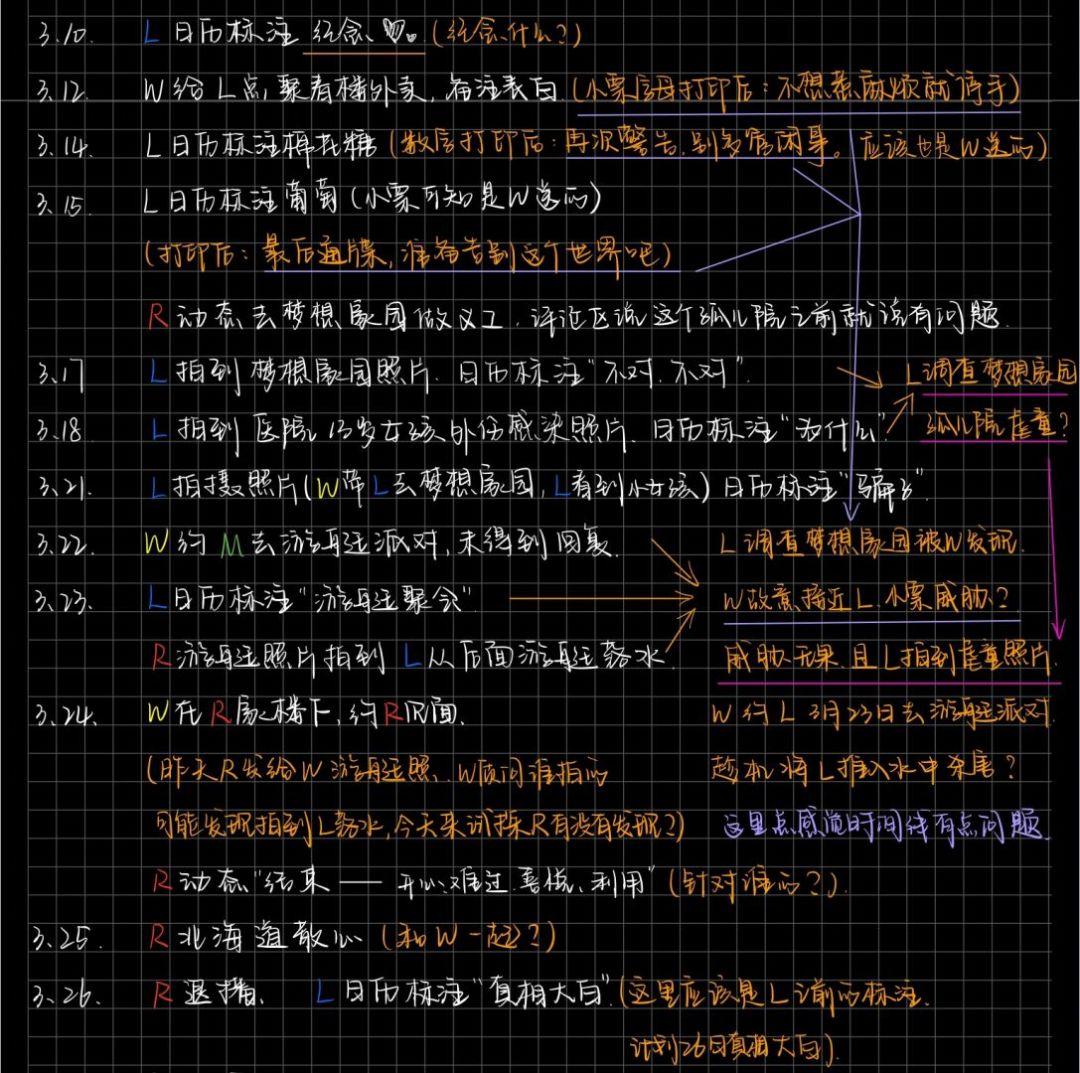 3.10. L 日历标注 纪念♡。(纪念什么?)
3.12. W给L点聚春楼外卖,备注表白(小票打印后:不想惹麻烦就停手)
3.14. L日历标注棉花糖(打印后:再次警告,别多管闲事。应该也是W送的)
3.15. L日历标注葡萄(小票可知是W送的)
(打印后:最后通牒,准备告别这个世界吧)
R动态去梦想家园做义工,评论区说这个孤儿院之前就说有问题
3.17 L拍到梦想家园照片.日历标注"不对.不对". L调查梦想家园
3.18. L拍到医院13岁女孩外伤感染照片.日历标注"为什么" 孤儿院虐童?
3.21. L拍摄照片(W带L去梦想家园,L看到小女孩)日历标注"骗子".
3.22. W约M去游艇派对,未得到回复. L调查梦想家园被W发现.
3.23. L日历标注"游艇聚会" W故意接近L.小票威胁?
R游艇照片拍到L从后面游艇落水. 威胁无果.且L拍到虐童照片.
3.24. W在R家楼下,约R见面. W约L 3月23日去游艇派对.
(昨天R发给W游艇照.W质问谁拍的 趁机将L推入水中杀害?
可能发现拍到L落水,今天来试探R有没有发现?) 这里总感觉时间线有点问题.
R动态"结束——开心、难过、喜悦、利用"(针对谁的?).
3.25. R北海道散心(和W一起?)
3.26. R退播. L日历标注"真相大白".(这里应该是L之前的标注.
计划26日真相大白).